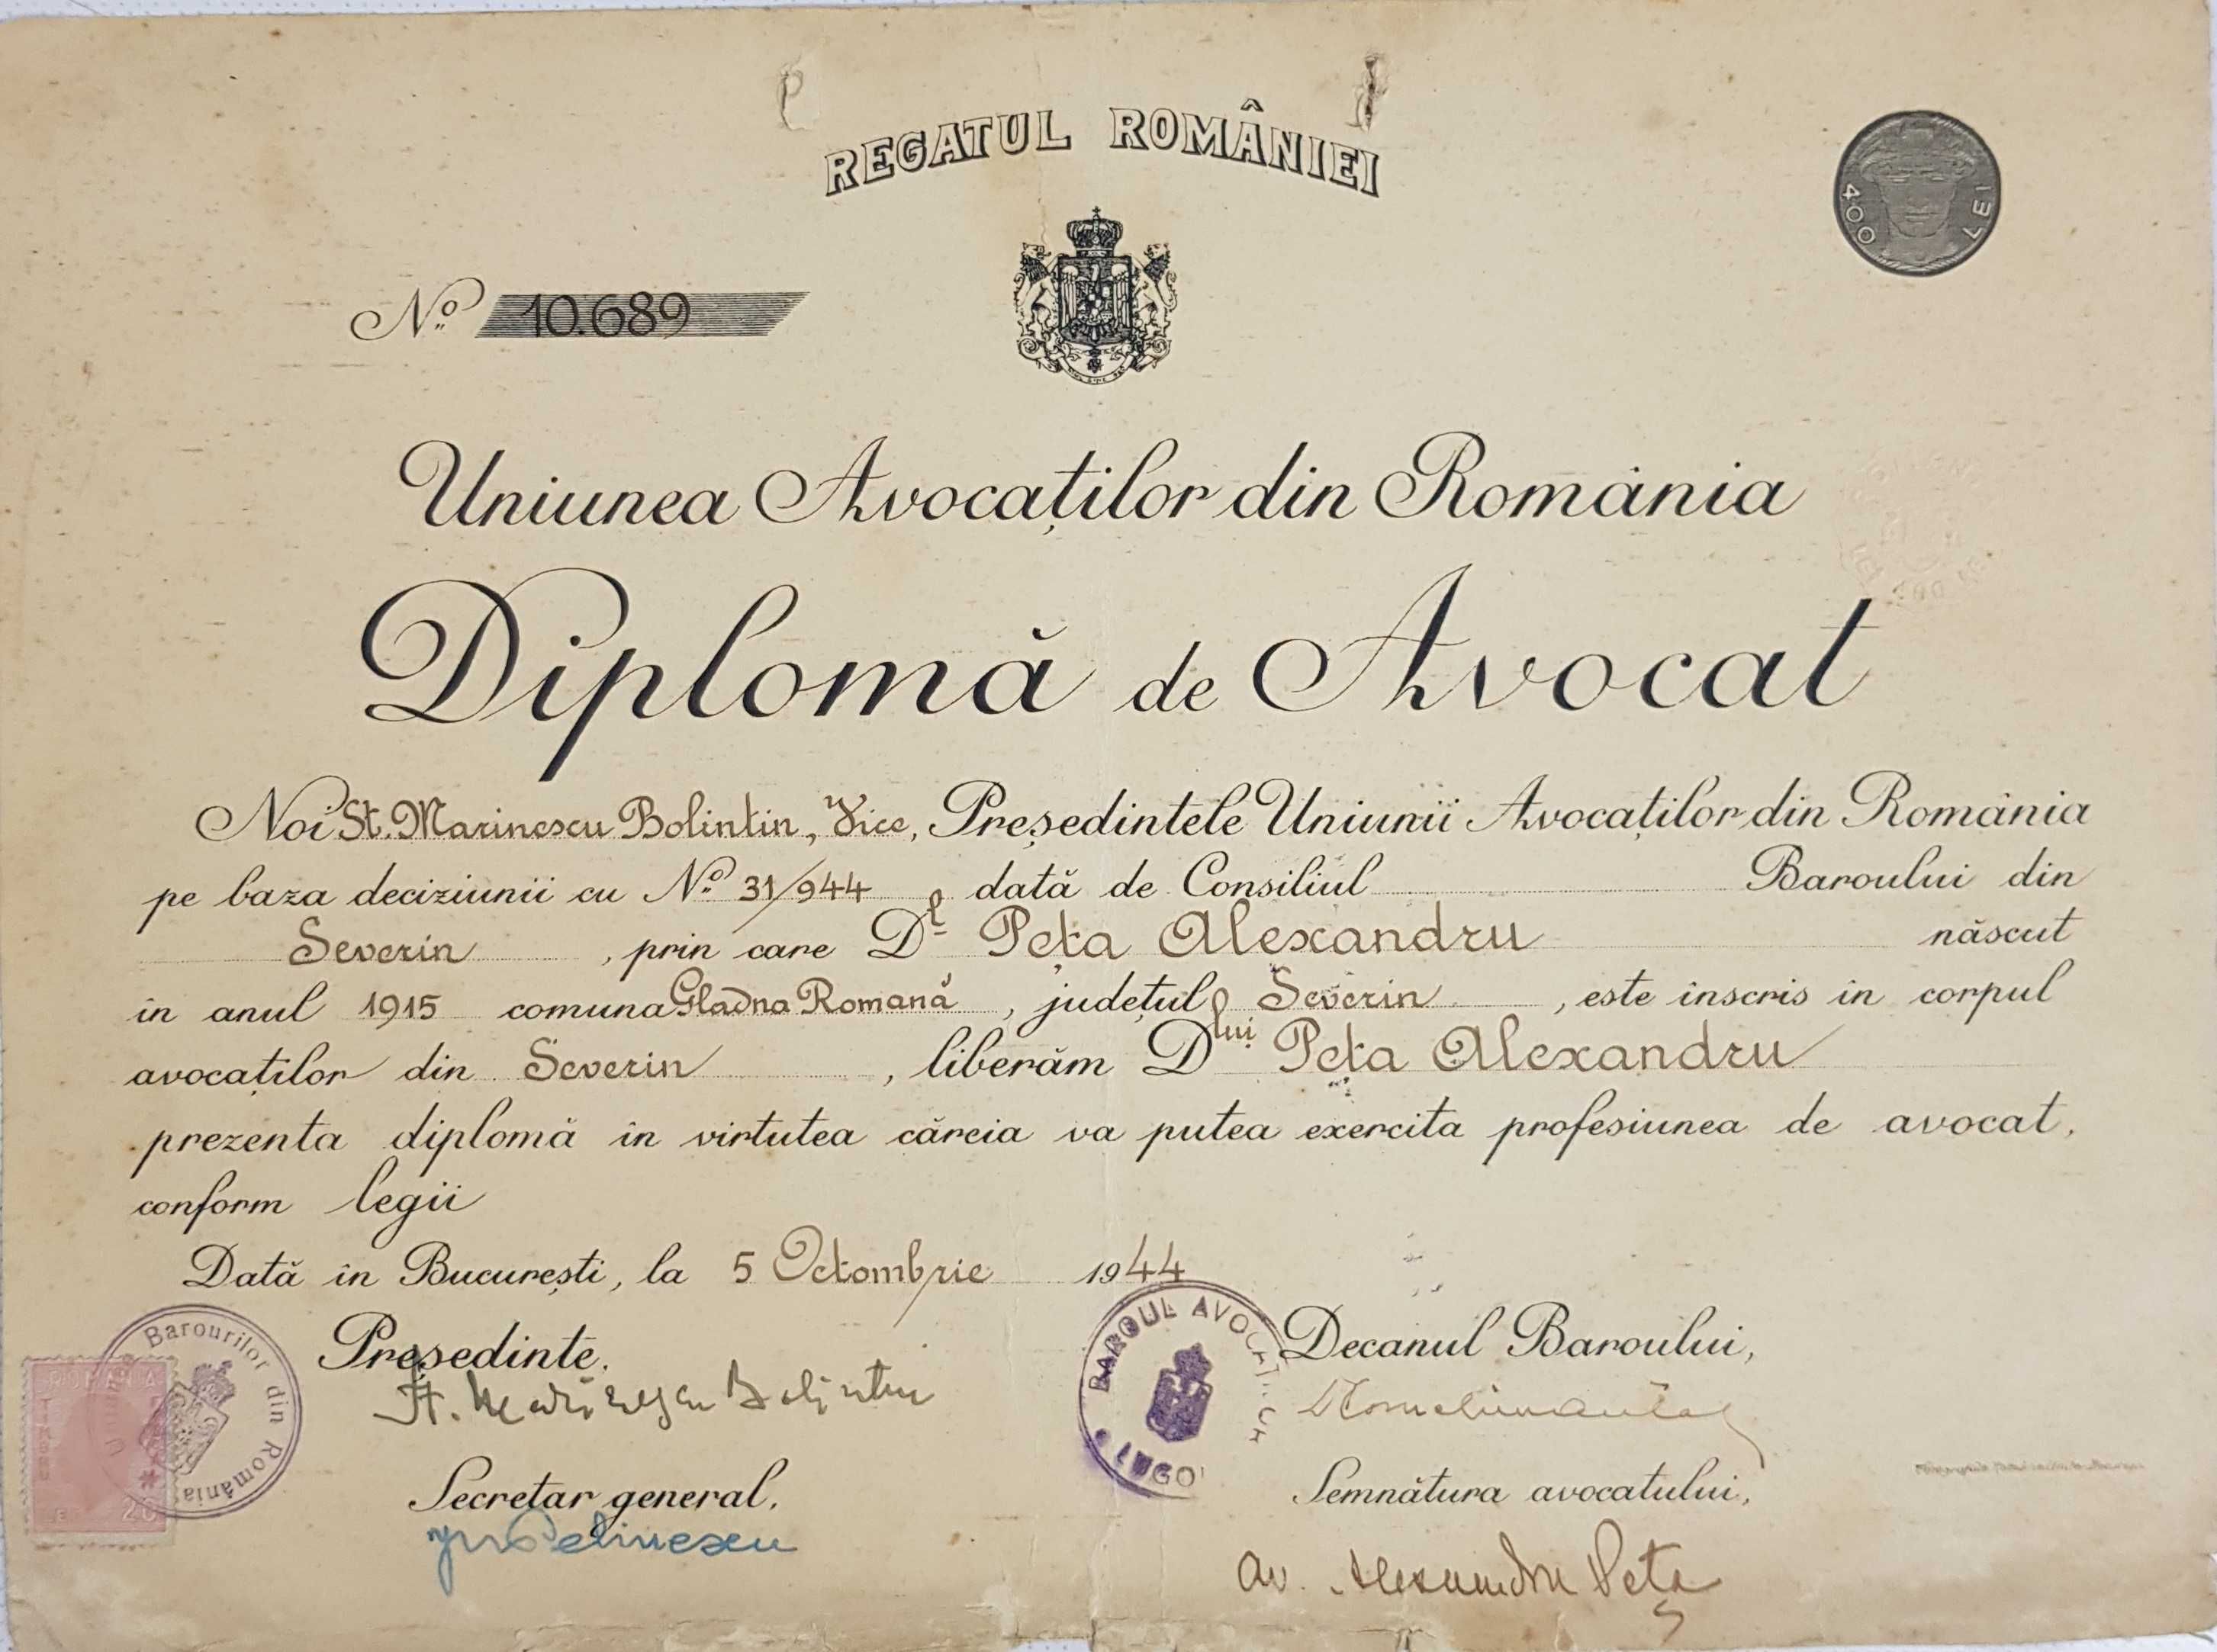 REGATUL ROMÂNIEI
400 LEI
Nº 10.689
Uniunea Avocaților din România
Diplomă de Avocat
Noi St. Marinescu Bolintin, Vice, Președintele Uniunii Avocaților din România
pe baza deciziunii cu Nº 31/944 dată de Consiliul Baroului din
Severin, prin care Dl Peța Alexandru născut
în anul 1915 comuna Gladna Română, județul Severin, este înscris în corpul
avocaților din Severin, liberăm Dlui Peța Alexandru
prezenta diplomă în virtutea căreia va putea exercita profesiunea de avocat,
conform legii
Dată în București, la 5 Octombrie 1944
Președinte.
St. Marinescu Bolintin
Decanul Baroului,
BAROUL AVOCAȚILOR
LUGOJ
Uniunea Barourilor din România
ROMANIA
TIMBRU
LEI 20
Secretar general,
Semnătura avocatului,
av. Alexandru Peța